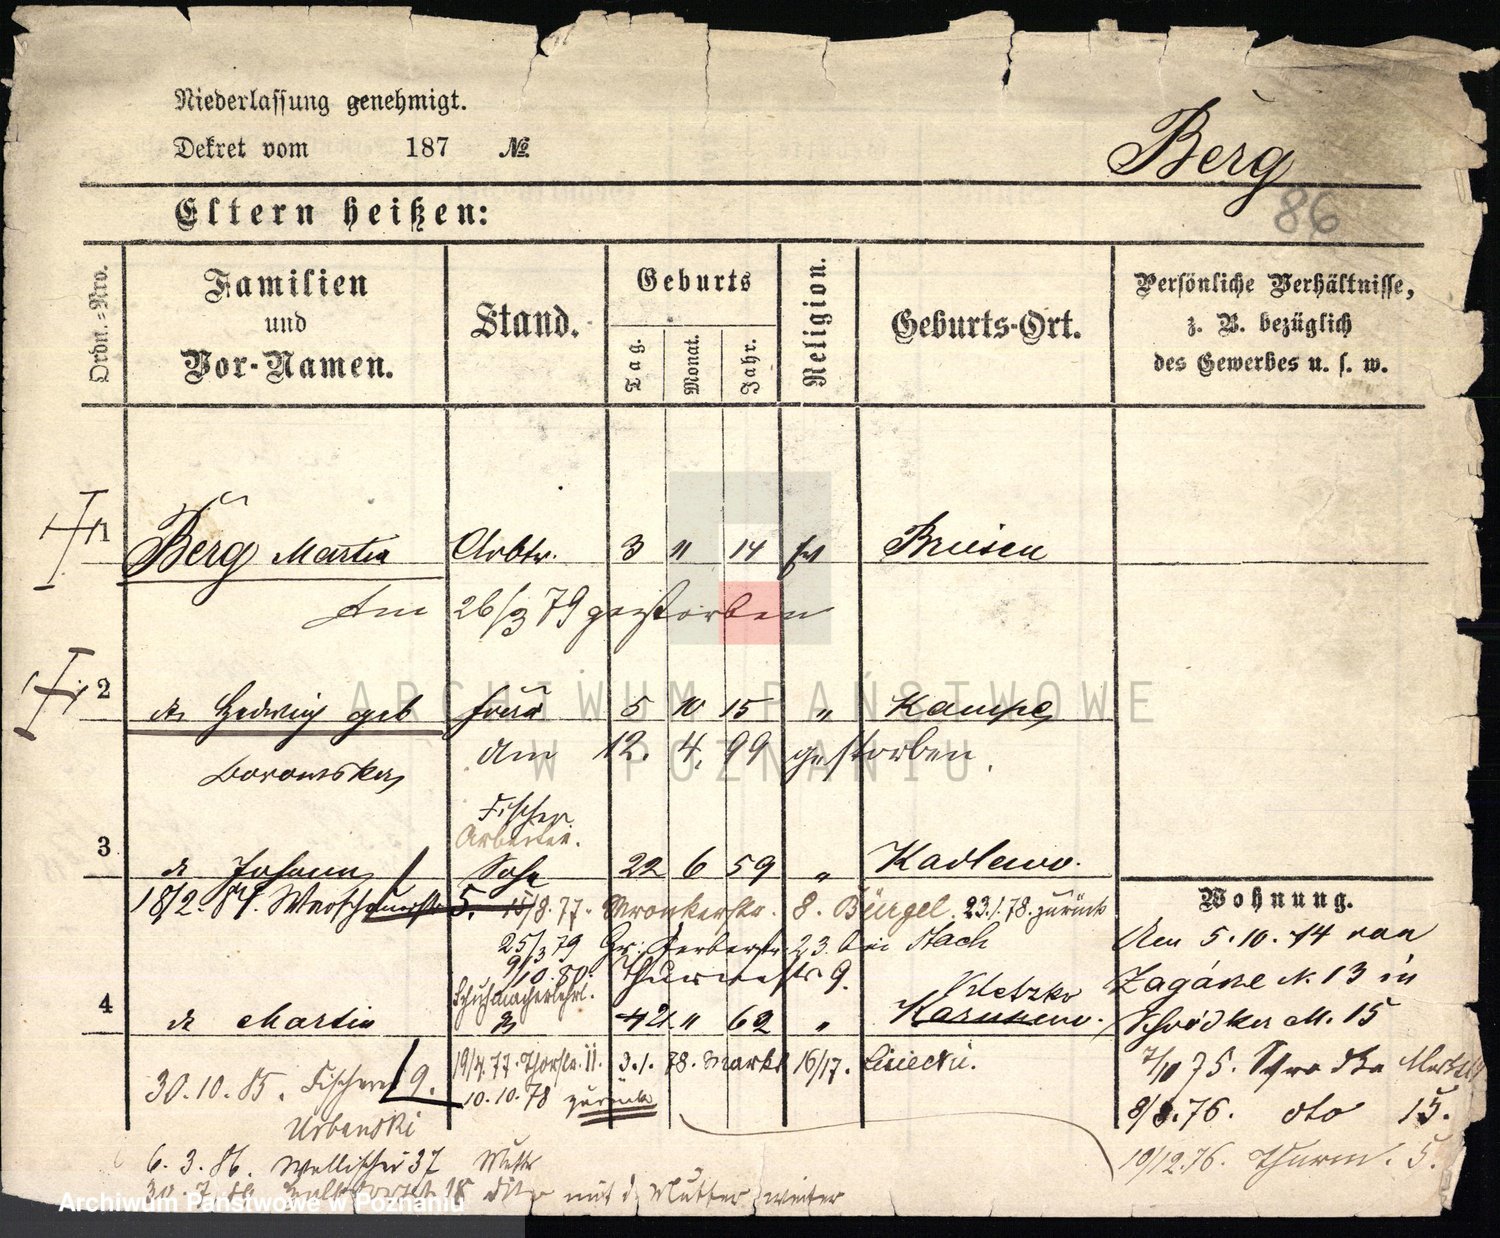 Niederlassung genehmigt.
Dekret vom 187 №
Berg
86
Eltern heißen:
Ordn.-Nro.
Familien und Vor-Namen.
Stand.
Geburts
Tag.
Monat.
Jahr.
Religion.
Geburts-Ort.
Persönliche Verhältnisse, z. B. bezüglich des Gewerbes u. s. w.
1 Berg Martin Arbtr. 3 11 14 Briesen
Am 26/3 79 gestorben
2 Hedwig geb Frau 5 10 15 " Kampe
am 12. 4. 99 gestorben.
Borowska
Fischer
Arbeiter.
3 Johann Sohn 22 6 59 " Kadlewo.
Wohnung.
18/2. 15/8. 77. Wronkerstr. 8. Bürgel 23.1.78. zurück
25/3 79 Gr. Gerberstr. 23. bei Stach
Den 5. 10. 74 von
9/10. 80. 9.
Zagórze N. 13 in
Schuhmacherlehrl.
Kletzko
4 Martin 11 62 "
Schrodka M. 15
19/4 77. Thorstr. 11. 3. 1. 78. Markt 16/17.
7/10 75. Schrodka Markt
30. 10. 85. Fischerei 9. 10. 10. 78 zurück
76. dto 15.
Urbanski
19/12.76. Thurm. 5.
6. 3. 86. Wallischei 37 Mutter
mit d. Mutter weiter
ARCHIWUM PAŃSTWOWE
W POZNANIU
Archiwum Państwowe w Poznaniu